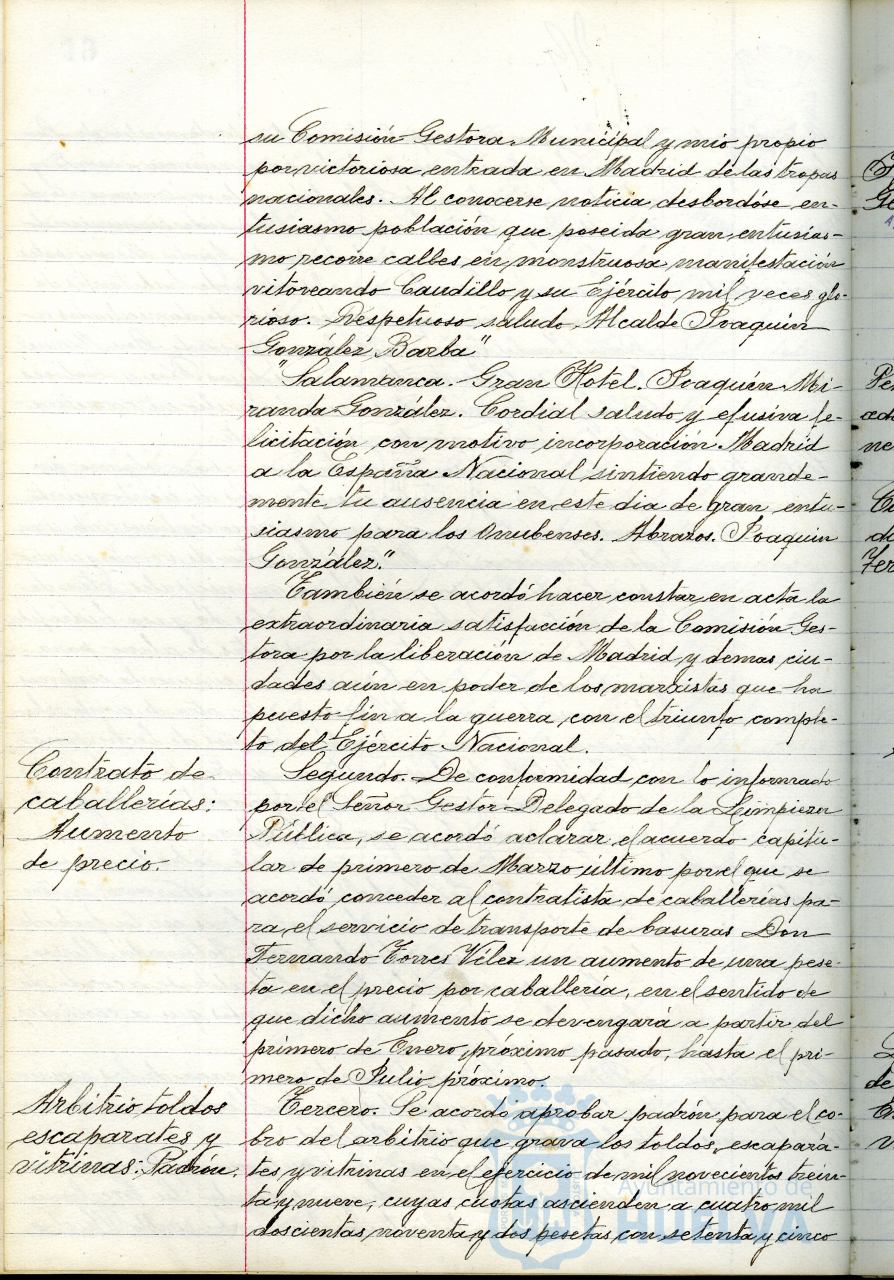 su Comisión Gestora Municipal y mio propio
por victoriosa entrada en Madrid de las tropas
nacionales. Al conocerse noticia desbordóse en-
tusiasmo población que poseida gran entusias-
mo recorre calles en monstruosa manifestación
vitoreando Caudillo y su Ejército mil veces glo-
rioso. Respetuoso saludo, Alcalde Joaquín
González Barba"
"Salamanca. Gran Hotel. Joaquín Mi-
randa González. Cordial saludo y efusiva fe-
licitación con motivo incorporación Madrid
a la España Nacional sintiendo grande-
mente tu ausencia en este dia de gran entu-
siasmo para los Onubenses. Abrazos. Joaquin
González."
También se acordó hacer constar en acta la
extraordinaria satisfacción de la Comisión Ges-
tora por la liberación de Madrid y demas ciu-
dades aún en poder de los marxistas que ha
puesto fin a la guerra con el triunfo comple-
to del Ejército Nacional.
Contrato de
caballerías:
Aumento
de precio.
Segundo. De conformidad con lo informado
por el Señor Gestor Delegado de la Limpieza
Pública, se acordó aclarar el acuerdo capitu-
lar de primero de Marzo último por el que se
acordó conceder al contratista de caballerías pa-
ra el servicio de transporte de basuras Don
Fernando Torres Vélez un aumento de una pese-
ta en el precio por caballería, en el sentido de
que dicho aumento se devengará a partir del
primero de Enero próximo pasado, hasta el pri-
mero de Julio próximo.
Arbitrio toldos
escaparates y
vitrinas: Padrón.
Tercero. Se acordó aprobar padrón para el co-
bro del arbitrio que grava los toldos, escapara-
tes y vitrinas en el ejercicio de mil novecientos trein-
ta y nueve, cuyas cuotas ascienden a cuatro mil
doscientas noventa y dos pesetas con setenta y cinco
Ayuntamiento de
HUELVA